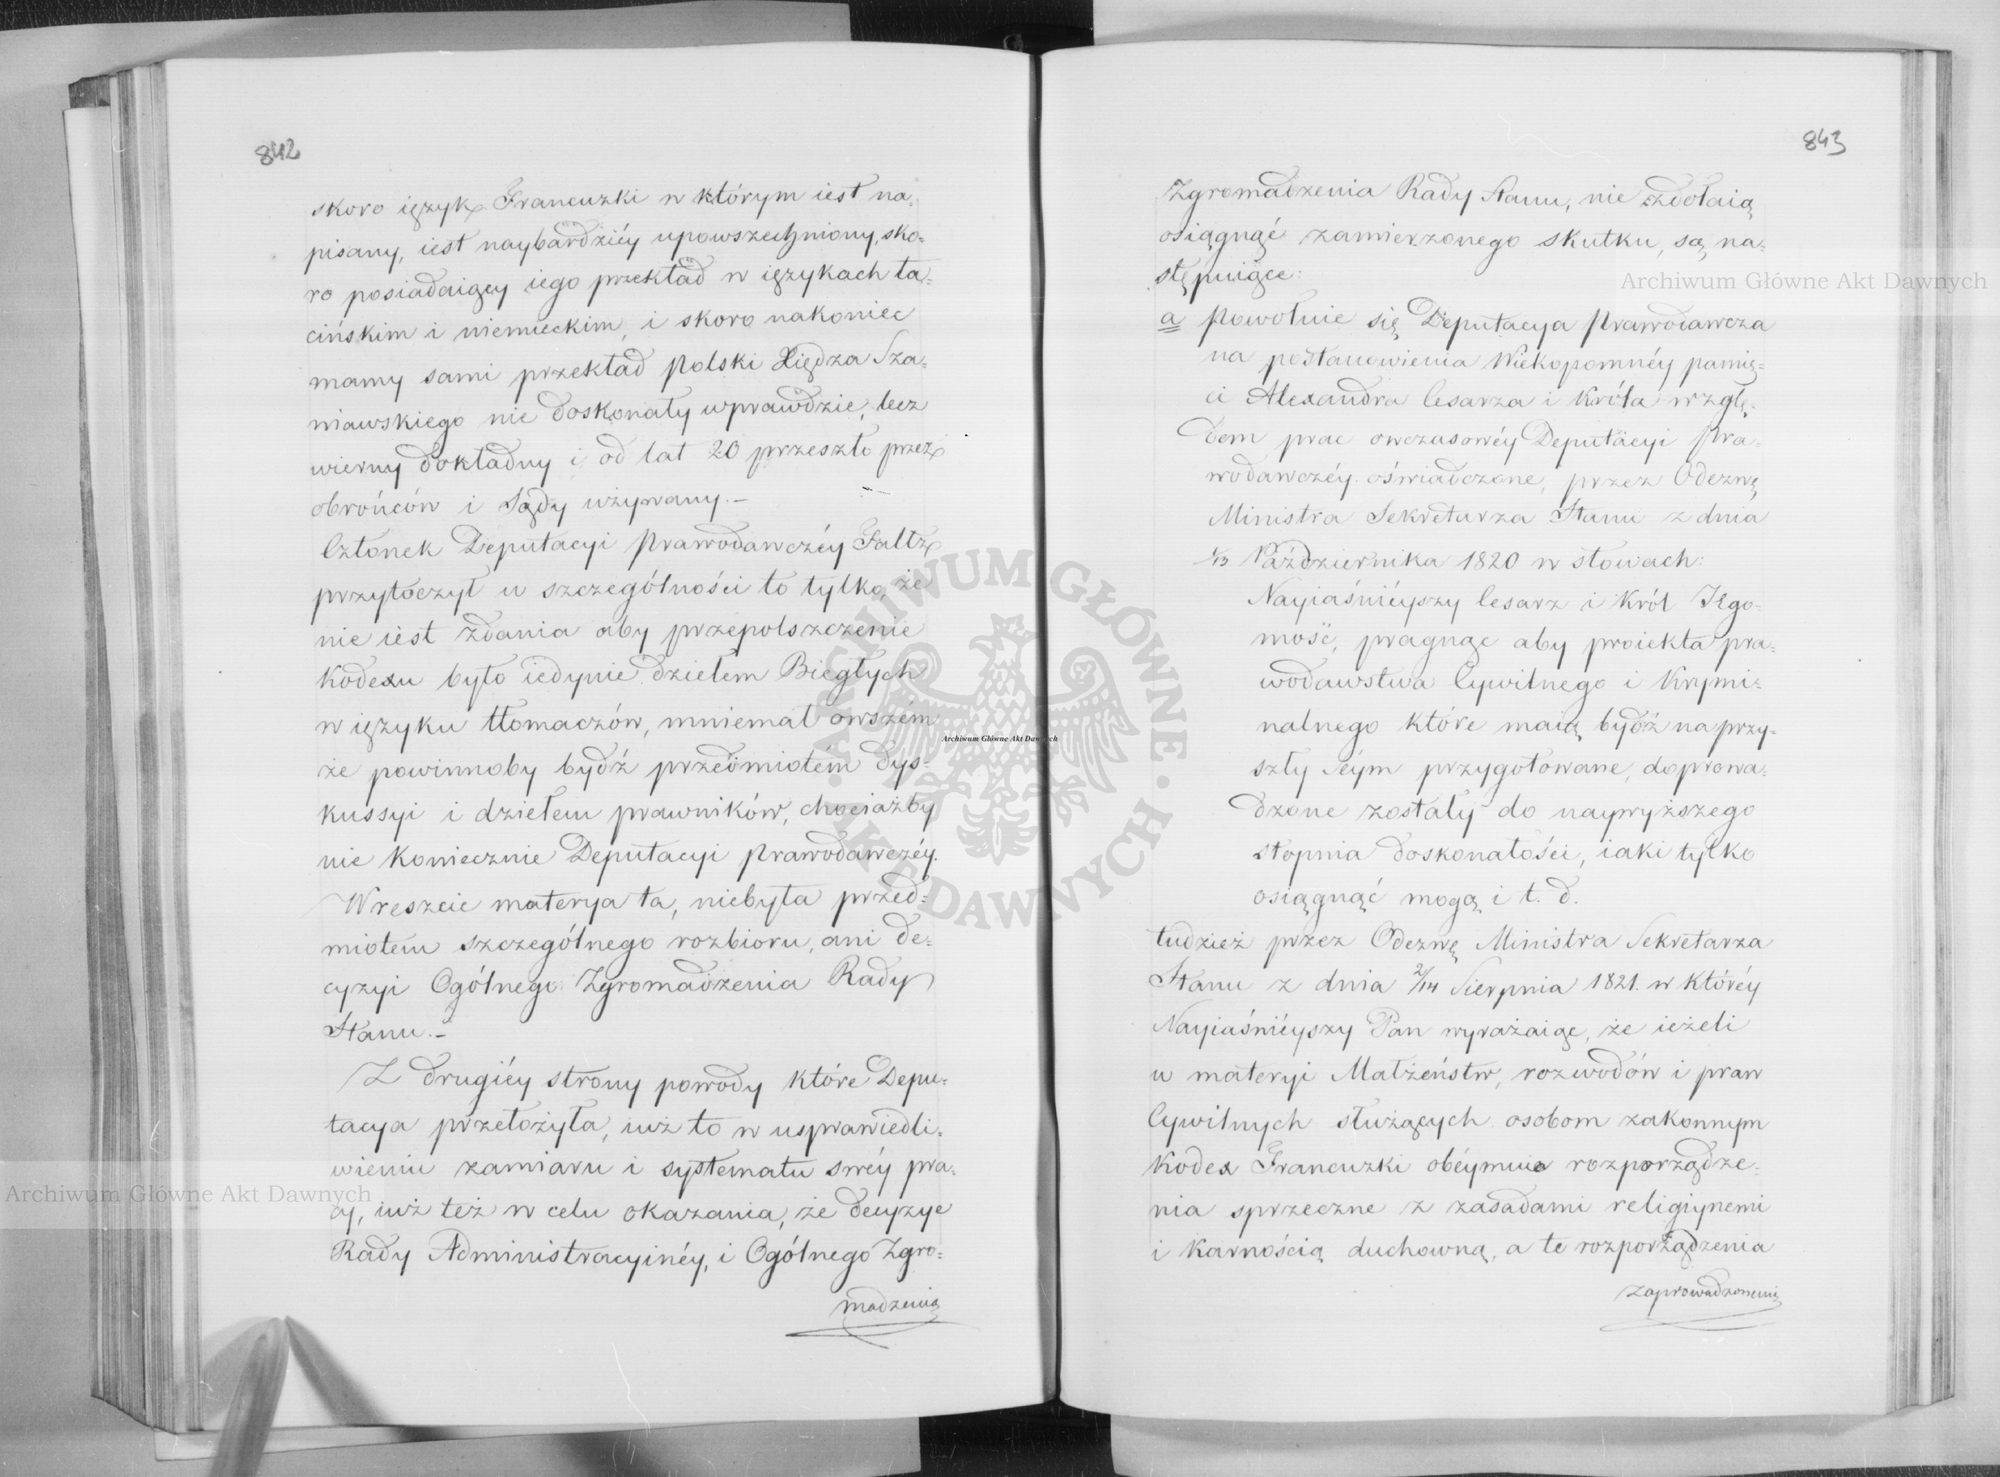 842
skoro ięzyk Francuzki w którym iest na
pisany, iest naybardziéy upowszechniony, sko=
ro posiadaiący iego przekład w ięzykach ła=
cińskim i niemieckim, i skoro nakoniec
mamy sami przekład polski Xiędza Sza=
niawskiego nie doskonały wprawdzie, lecz
wierny dokładny i od lat 20 przeszło przez
obrońców i Sądy używany.—
Członek Deputacyi Prawodawczéy Faltz
przytoczył w szczególności to tylko, że
nie iest zdania aby przepolszczenie
Kodexu było iedynie dziełem Biegłych
w ięzyku tłomaczów, mniemał owszém
że powinnoby bydź przedmiotém dys=
kussyi i dziełem prawników, chociażby
nie koniecznie Deputacyi Prawodawczéy.
Wreszcie materya ta, niebyła przed=
miotem szczególnego rozbioru, ani de=
cyzyi Ogólnego Zgromadzenia Rady
Stanu.—
Z drugiéy strony powody które Depu=
tacya przełożyła, iuż to w usprawiedli=
wieniu zamiaru i systematu swéy pra=
cy, iuż też w celu okazania, że decyzye
Rady Administracyinéy, i Ogólnego Zgro=
madzenia
843
Zgromadzenia Rady Stanu, nie zdołaią
osiągnąć zamierzonego skutku, są na=
stępuiące:
a powołuie się Deputacya Prawodawcza
na postanowienia Wiekopomnéy pamię=
ci Alexandra Cesarza i Króla wzglę=
dem prac owczasowéy Deputacyi Pra=
wodawczéy oświadczone, przez Odezwę
Ministra Sekretarza Stanu z dnia
1/13 Października 1820 w słowach:
Nayiaśniéyszy Cesarz i Król Jego=
mość, pragnąc aby proiekta pra=
wodawstwa Cywilnego i Krymi=
nalnego które maią bydź na przy=
szły Séym przygotowane, doprowa=
dzone zostały do naywyższego
stopnia doskonałości, iaki tylko
osiągnąć mogą i t. d.
tudzież przez Odezwę Ministra Sekretarza
Stanu z dnia 2/14 Sierpnia 1821. w któréy
Nayiaśniéyszy Pan wyrażaiąc, że ieżeli
w materyi Małżeństw, rozwodów i praw
Cywilnych służących osobom zakonnym
Kodex Francuzki obéymuie rozporządze=
nia sprzeczne z zasadami religiynemi
i karnością duchowną, a te rozporządzenia
zaprowadzonemi
Archiwum Główne Akt Dawnych
Archiwum Główne Akt Dawnych
Archiwum Główne Akt Dawnych
ARCHIWUM GŁÓWNE AKT DAWNYCH